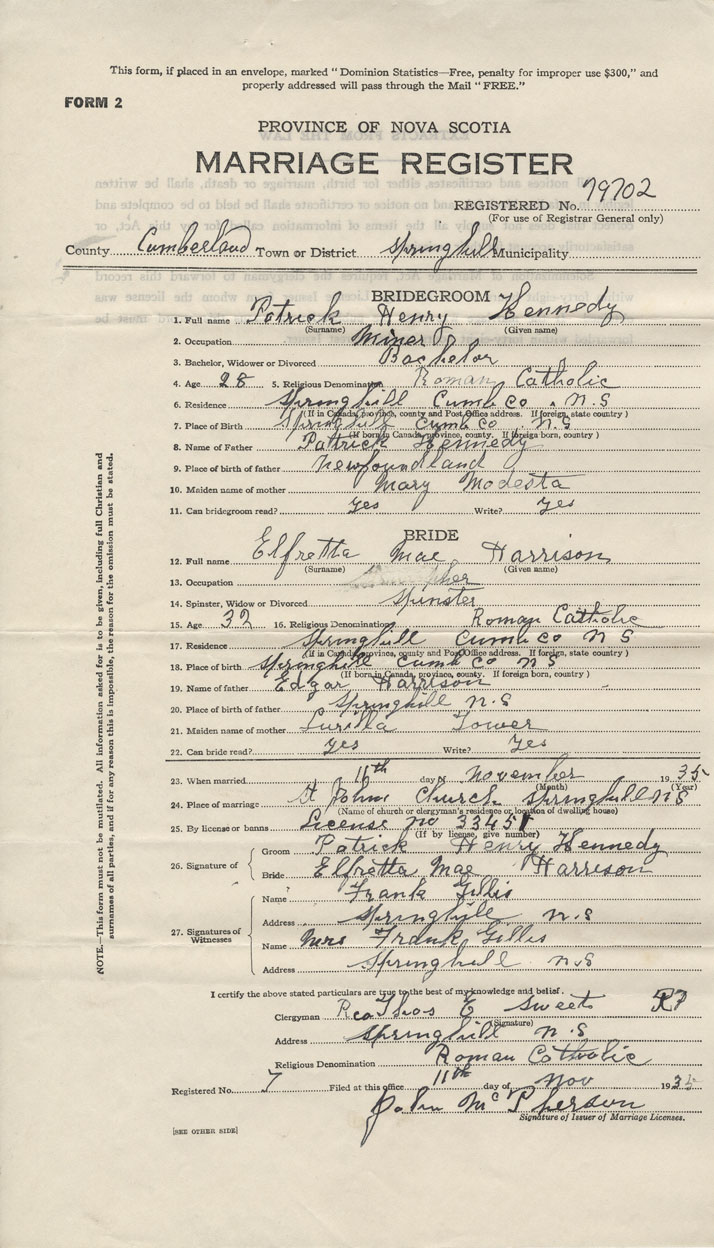 This form, if placed in an envelope, marked "Dominion Statistics—Free, penalty for improper use $300," and
properly addressed will pass through the Mail "FREE."
FORM 2
PROVINCE OF NOVA SCOTIA
MARRIAGE REGISTER
REGISTERED No. 79702
(For use of Registrar General only)
County Cumberland Town or District Springhill Municipality
BRIDEGROOM
1. Full name Patrick Henry Kennedy
(Surname) (Given name)
2. Occupation Miner
3. Bachelor, Widower or Divorced Bachelor
4. Age 28 5. Religious Denomination Roman Catholic
6. Residence Springhill Cumb Co. N.S
(If in Canada, province, county and Post Office address. If foreign, state country)
7. Place of Birth Springhill Cumb Co. N.S
(If born in Canada, province, county. If foreign born, country)
8. Name of Father Patrick Kennedy
9. Place of birth of father Newfoundland
10. Maiden name of mother Mary Modesta
11. Can bridegroom read? Yes Write? Yes
BRIDE
12. Full name Elfretta Mae Harrison
(Surname) (Given name)
13. Occupation
14. Spinster, Widow or Divorced Spinster
15. Age 32 16. Religious Denomination Roman Catholic
17. Residence Springhill Cumb Co N S
(If in Canada, province, county and Post Office address. If foreign, state country)
18. Place of birth Springhill Cumb Co N S
(If born in Canada, province, county. If foreign born, country)
19. Name of father Edgar Harrison
20. Place of birth of father Springhill N.S
21. Maiden name of mother Lurilla Tower
22. Can bride read? Yes Write? Yes
23. When married 11th day of November 1935
(Month) (Year)
24. Place of marriage St Johns Church Springhill NS
(Name of church or clergyman's residence or location of dwelling house)
25. By license or banns License no 33451
(If by license, give number)
26. Signature of Groom Patrick Henry Kennedy
Bride Elfretta Mae Harrison
27. Signatures of Witnesses
Name Frank Gillis
Address Springhill N.S
Name Mrs Frank Gillis
Address Springhill N.S
I certify the above stated particulars are true to the best of my knowledge and belief.
Clergyman Thos E Sweet
(Signature)
Address Springhill N.S
Religious Denomination Roman Catholic
Registered No. 7 Filed at this office 11th day of Nov 1935
John McPherson
Signature of Issuer of Marriage Licenses.
[SEE OTHER SIDE]
NOTE.—This form must not be mutilated. All information asked for is to be given, including full Christian and
surnames of all parties, and if for any reason this is impossible, the reason for the omission must be stated.